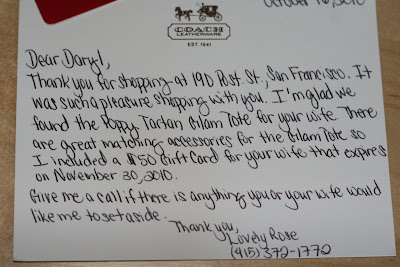 October 16, 2010
COACH
LEATHERWARE
EST. 1941
Dear Daryl,
Thank you for shopping at 190 Post St., San Francisco. It
was such a pleasure shopping with you. I'm glad we
found the Poppy Tartan Glam Tote for your wife. There
are great matching accessories for the Glam Tote so
I included a $50 Gift Card for your wife that expires
on November 30, 2010.
Give me a call if there is anything you or your wife would
like me to set aside.
Thank you,
Lovely Rose
(415) 372-1772